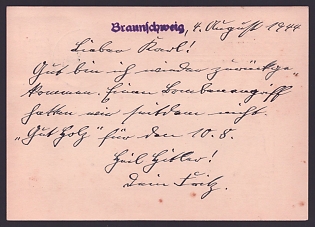 Braunschweig, 4. August 1944
Lieber Karl!
Gut bin ich wieder zurückge-
kommen. Einen Bombenangriff
hatten wir seitdem nicht.
„Gut Holz" für den 10. 8.
Heil Hitler!
Dein Fritz.